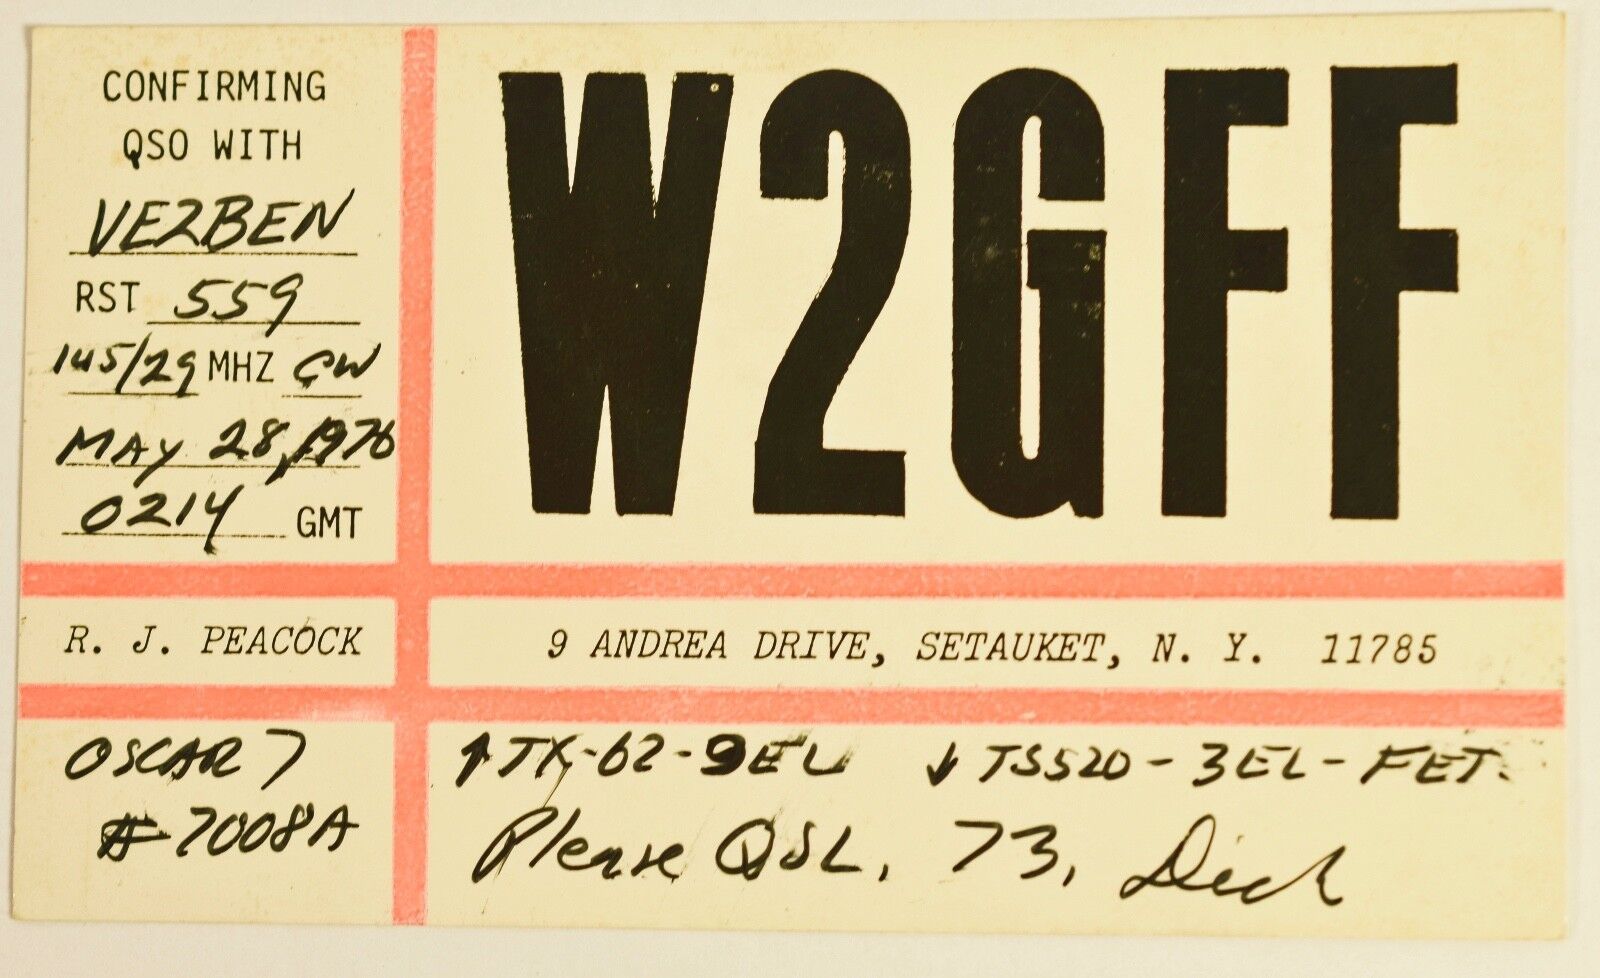 CONFIRMING
QSO WITH
VE2BEN
RST 559
145/29 MHZ CW
MAY 28, 1976
0214 GMT
W2GFF
R. J. PEACOCK
9 ANDREA DRIVE, SETAUKET, N. Y. 11785
OSCAR 7
# 7008A
↑TX-62-9EL ↓TS520-3EL-FET.
Please QSL, 73, Dick